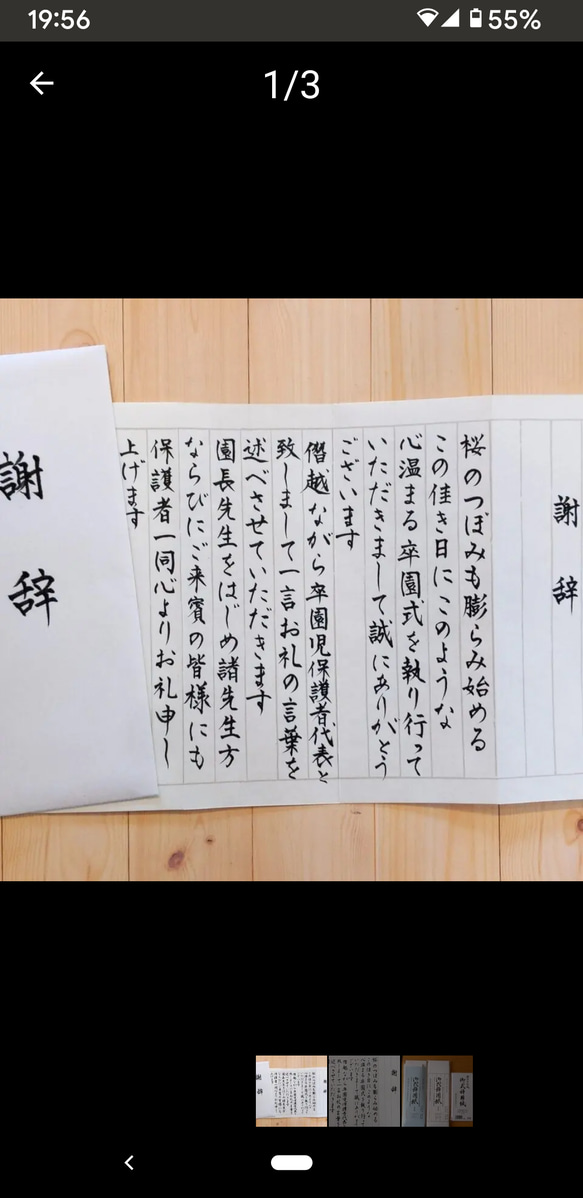 19:56
55%
1/3
謝辞
桜のつぼみも膨らみ始める
この佳き日にこのような
心温まる卒園式を執り行って
いただきまして誠にありがとう
ございます
僭越ながら卒園児保護者代表と
致しまして一言お礼の言葉を
述べさせていただきます
園長先生をはじめ諸先生方
ならびにご来賓の皆様にも
保護者一同心よりお礼申し
上げます
謝辞